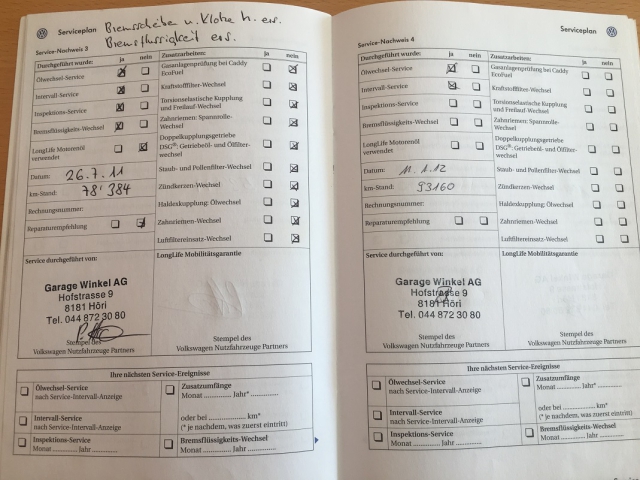 Serviceplan
Bremsscheibe u. Klötze h. ers.
Bremsflüssigkeit ers.
Service-Nachweis 3
Durchgeführt wurde: ja nein
Ölwechsel-Service
Intervall-Service
Inspektions-Service
Bremsflüssigkeits-Wechsel
LongLife Motorenöl
verwendet
Datum: 26.7.11
km-Stand: 78'384
Rechnungsnummer:
Reparaturempfehlung
Zusatzarbeiten: ja nein
Gasanlagenprüfung bei Caddy
EcoFuel
Kraftstofffilter-Wechsel
Torsionselastische Kupplung
und Freilauf-Wechsel
Zahnriemen: Spannrolle-
Wechsel
Doppelkupplungsgetriebe
DSG®: Getriebeöl- und Ölfilter-
wechsel
Staub- und Pollenfilter-Wechsel
Zündkerzen-Wechsel
Haldexkupplung: Ölwechsel
Zahnriemen-Wechsel
Luftfiltereinsatz-Wechsel
Service durchgeführt von:
Garage Winkel AG
Hofstrasse 9
8181 Höri
Tel. 044 872 30 80
Stempel des
Volkswagen Nutzfahrzeuge Partners
LongLife Mobilitätsgarantie
Stempel des
Volkswagen Nutzfahrzeuge Partners
Ihre nächsten Service-Ereignisse
Ölwechsel-Service
nach Service-Intervall-Anzeige
Intervall-Service
nach Service-Intervall-Anzeige
Inspektions-Service
Monat ........... Jahr ...........
Zusatzumfänge
Monat ........... Jahr* ...........
oder bei ................ km*
(* je nachdem, was zuerst eintritt)
Bremsflüssigkeits-Wechsel
Monat ........... Jahr ...........
Serviceplan
Service-Nachweis 4
Durchgeführt wurde: ja nein
Ölwechsel-Service
Intervall-Service
Inspektions-Service
Bremsflüssigkeits-Wechsel
LongLife Motorenöl
verwendet
Datum: 11.1.12
km-Stand: 93160
Rechnungsnummer:
Reparaturempfehlung
Zusatzarbeiten: ja nein
Gasanlagenprüfung bei Caddy
EcoFuel
Kraftstofffilter-Wechsel
Torsionselastische Kupplung
und Freilauf-Wechsel
Zahnriemen: Spannrolle-
Wechsel
Doppelkupplungsgetriebe
DSG®: Getriebeöl- und Ölfilter-
wechsel
Staub- und Pollenfilter-Wechsel
Zündkerzen-Wechsel
Haldexkupplung: Ölwechsel
Zahnriemen-Wechsel
Luftfiltereinsatz-Wechsel
Service durchgeführt von:
Garage Winkel AG
Hofstrasse 9
8181 Höri
Tel. 044 872 30 80
Stempel des
Volkswagen Nutzfahrzeuge Partners
LongLife Mobilitätsgarantie
Stempel des
Volkswagen Nutzfahrzeuge Partners
Ihre nächsten Service-Ereignisse
Ölwechsel-Service
nach Service-Intervall-Anzeige
Intervall-Service
nach Service-Intervall-Anzeige
Inspektions-Service
Monat ........... Jahr ...........
Zusatzumfänge
Monat ........... Jahr* ...........
oder bei ................ km*
(* je nachdem, was zuerst eintritt)
Bremsflüssigkeits-Wechsel
Monat ........... Jahr ...........